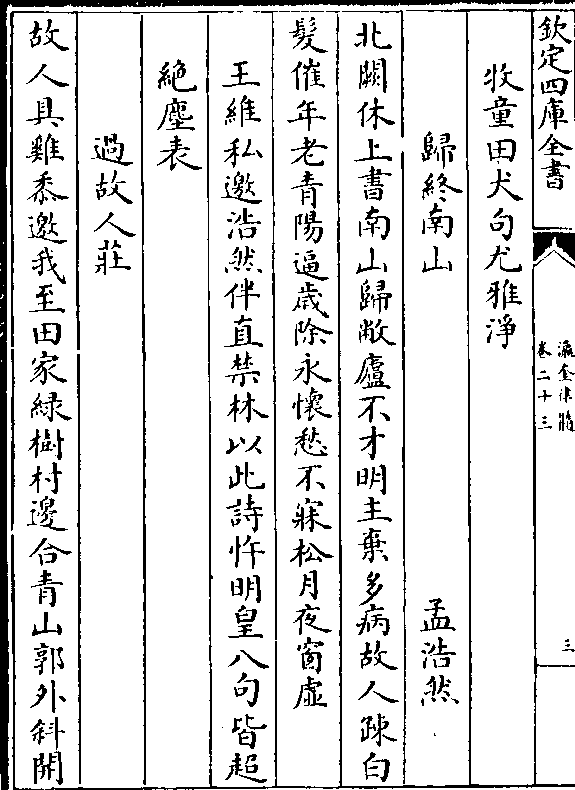 欽定四庫全書
瀛奎律髓
卷二十三
三
牧童田犬句尤雅淨
歸終南山 孟浩然
北闕休上書南山歸敝廬不才明主棄多病故人踈白
髮催年老青陽逼歲除永懷愁不寐松月夜窗虛
王維私邀浩然伴直禁林以此詩忤明皇八句皆超
絶塵表
過故人莊
故人具雞黍邀我至田家緑樹村邊合青山郭外斜開